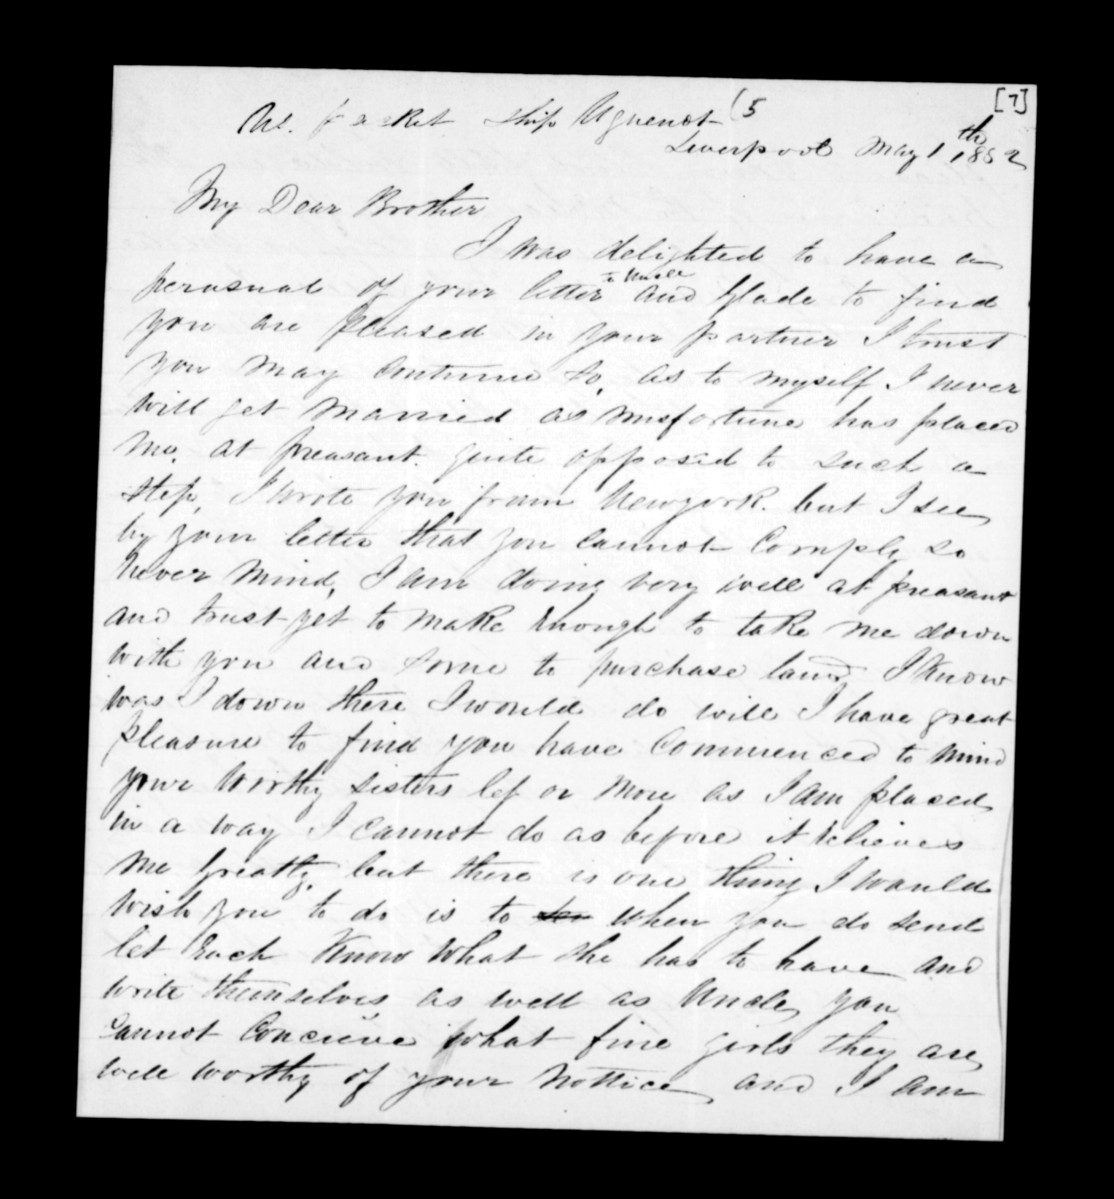 [7]
(5
Us. packet Ship Uguenot
Liverpool May 1th 1852
My Dear Brother
I was delighted to have a
perasual of your letter to Uncle and Glade to find
you are pleased in your partner I trust
you may continue so, as to myself I never
will get married as misfortune has placed
me. at preasant. quite opposed to such a
step, I wrote you from Newyork. but I see
by your letter that you cannot Comply so
never mind, I am doing very well at preasant
and trust yet to make Enough to take me down
with you and some to purchase land I know
was I down there I would do will I have great
pleasure to find you have Commenced to mind
your worthy sisters les or more as I am placed
in a way I cannot do as before it relieves
me greatly, but there is one thing I would
wish you to do is to when you do send
let Each know what she has to have and
write themselves as well as Uncle, you
cannot Concieve what fine girls they are
well worthy of your nottice, and I am